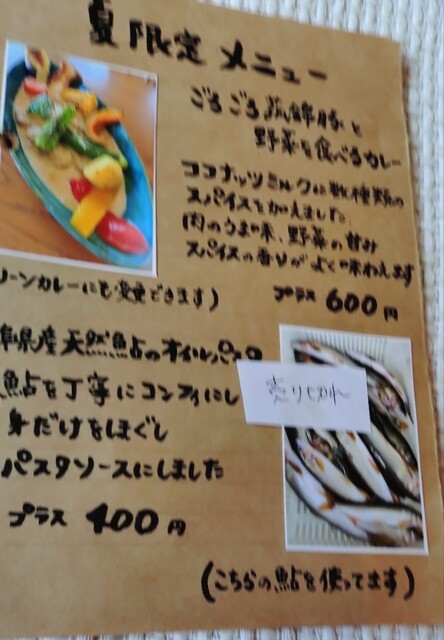 夏限定メニュー
ごろごろ蔬錦豚と
野菜を食べるカレー
ココナッツミルクに数種類の
スパイスを加えました。
肉のうま味、野菜の甘み
スパイスの香りがよく味わえます
リーンカレーにも変更できます)
プラス 600円
阜県産天然鮎のオイルパスタ
鮎を丁寧にコンフィにし
身だけをほぐし
パスタソースにしました
プラス 400円
売り切れ
(こちらの鮎を使ってます)